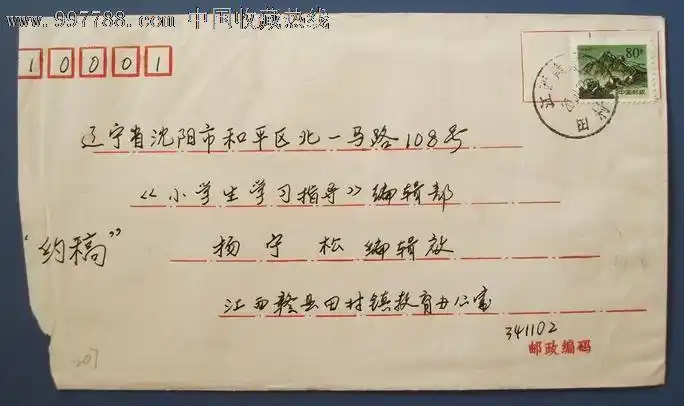 www.997788.com 中国收藏热线
1 0 0 0 1
80分
中国邮政
辽宁省沈阳市和平区北一马路108号
《小学生学习指导》编辑部
“约稿”
杨宁松 编辑启
江西赣县田村镇教育办公室
341102
邮政编码
207